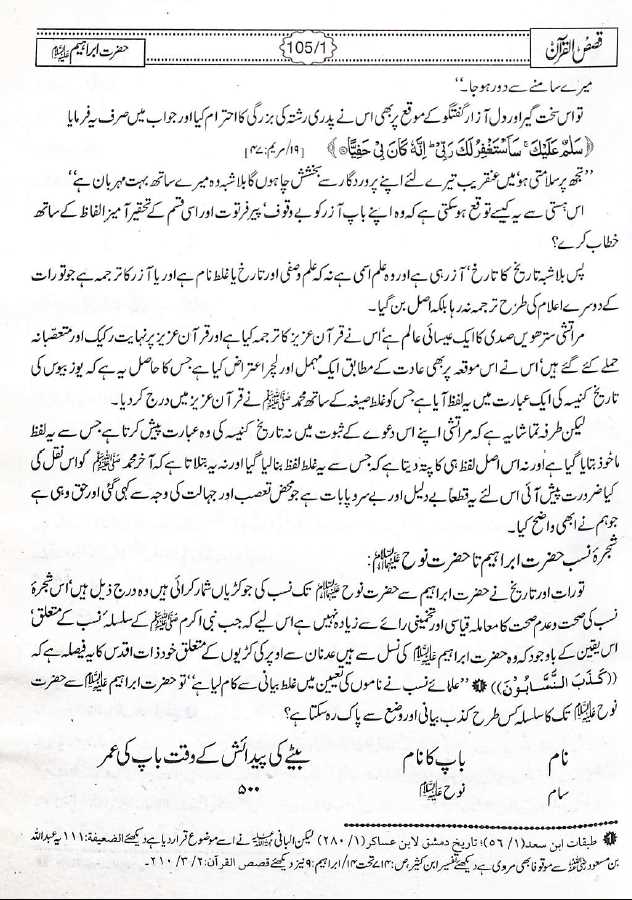 قصص القرآن
105/1
حضرت ابراہیم علیہ السلام
میرے سامنے سے دور ہو جا۔''
تو اس سخت گیر اور دل آزار گفتگو کے موقع پر بھی اس نے پدری رشتہ کی بزرگی کا احترام کیا اور جواب میں صرف یہ فرمایا
﴿سَلٰمٌ عَلَيْكَ ۚ سَاَسْتَغْفِرُ لَكَ رَبِّيْ ؕ اِنَّهٗ كَانَ بِيْ حَفِيًّا﴾ [۱۹/مریم:۴۷]
''تجھ پر سلامتی ہو' میں عنقریب تیرے لئے اپنے پروردگار سے بخشش چاہوں گا بلاشبہ وہ میرے ساتھ بہت مہربان ہے''
اس ہستی سے یہ کیسے توقع ہو سکتی ہے کہ وہ اپنے باپ آزر کو بے وقوف' پیر فرتوت اور اسی قسم کے تحقیر آمیز الفاظ کے ساتھ
خطاب کرے؟
پس بلاشبہ تاریخ کا تارخ' آزر ہی ہے اور وہ علم اسمی ہے نہ کہ علم وصفی اور تارخ یا غلط نام ہے اور یا آزر کا ترجمہ ہے جو تورات
کے دوسرے اعلام کی طرح ترجمہ نہ رہا بلکہ اصل بن گیا۔
مراتشی سترھویں صدی کا ایک عیسائی عالم ہے' اس نے قرآن عزیز کا ترجمہ کیا ہے اور قرآن عزیز پر نہایت رکیک اور متعصبانہ
حملے کئے گئے ہیں' اس نے اس موقعہ پر بھی عادت کے مطابق ایک مہمل اور لچر اعتراض کیا ہے جس کا حاصل یہ ہے کہ یوز بیوس کی
تاریخ کنیسہ کی ایک عبارت میں یہ لفظ آیا ہے جس کو غلط صیغہ کے ساتھ محمد ﷺ نے قرآن عزیز میں درج کر دیا۔
لیکن طرفہ تماشا یہ ہے کہ مراتشی اپنے اس دعوے کے ثبوت میں نہ تاریخ کنیسہ کی وہ عبارت پیش کرتا ہے جس سے یہ لفظ
ماخوذ بتایا گیا ہے اور نہ اس اصل لفظ ہی کا پتہ دیتا ہے کہ جس سے یہ غلط لفظ بنالیا گیا اور نہ یہ بتلاتا ہے کہ آخر محمد ﷺ کو اس نقل کی
کیا ضرورت پیش آئی اس لئے یہ قطعاً بے دلیل اور بے سروپا بات ہے جو محض تعصب اور جہالت کی وجہ سے کہی گئی اور حق وہی ہے
جو ہم نے ابھی واضح کیا۔
شجرۂ نسب حضرت ابراہیم تا حضرت نوح علیہما السلام:
تورات اور تاریخ نے حضرت ابراہیم سے حضرت نوح علیہما السلام تک نسب کی جو کڑیاں شمار کرائی ہیں وہ درج ذیل ہیں' اس شجرۂ
نسب کی صحت و عدم صحت کا معاملہ قیاسی اور تخمینی رائے سے زیادہ نہیں ہے اس لیے کہ جب نبی اکرم ﷺ کے سلسلہ نسب کے متعلق'
اس یقین کے باوجود کہ وہ حضرت ابراہیم علیہ السلام کی نسل سے ہیں عدنان سے اوپر کی کڑیوں کے متعلق خود ذات اقدس کا یہ فیصلہ ہے کہ
((كَذَبَ النَّسَّابُوْنَ)) ❶ ''علمائے نسب نے ناموں کی تعیین میں غلط بیانی سے کام لیا ہے'' تو حضرت ابراہیم علیہ السلام سے حضرت
نوح علیہ السلام تک کا سلسلہ کس طرح کذب بیانی اور وضع سے پاک رہ سکتا ہے؟
نام باپ کا نام بیٹے کی پیدائش کے وقت باپ کی عمر
سام نوح علیہ السلام ۵۰۰
❶ طبقات ابن سعد (۱/ ۵۶)؛ تاریخ دمشق لابن عساکر (۱/ ۲۸۰) لیکن البانی رحمہ اللہ نے اسے موضوع قرار دیا ہے دیکھئے الضعیفة: ۱۱۱ یہ عبداللہ
بن مسعود رضی اللہ عنہ سے موقوفاً بھی مروی ہے دیکھئے تفسیر ابن کثیر، ص: ۷۱۴ تحت ۱۴/ ابراہیم: ۹ نیز دیکھئے قصص القرآن: ۲/ ۳/ ۲۱۰۔